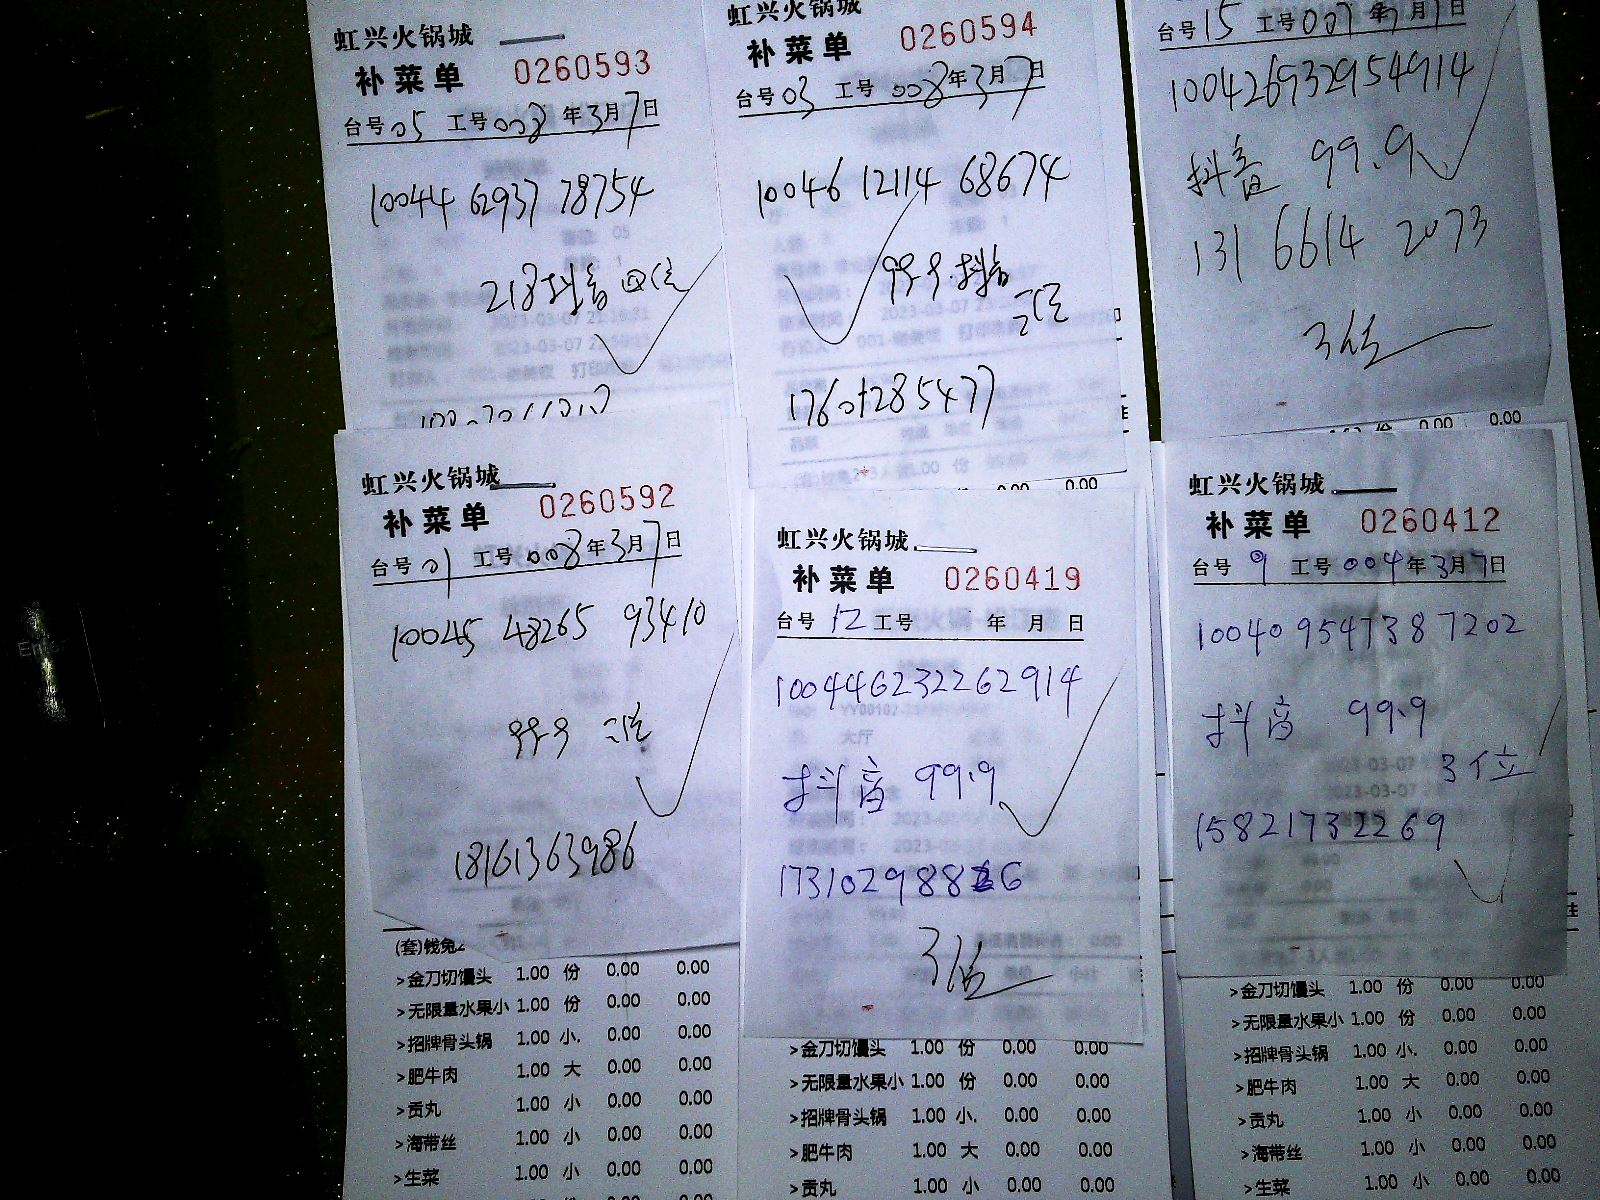 虹兴火锅城
补菜单 0260593
台号05 工号008 年3月7日
10044 62937 78754
218抖音 四位
虹兴火锅城
补菜单 0260594
台号03 工号008年3月7日
10046 12114 68674
99.9抖音
二位
17601285477
台号15 工号007 年3月7日
100426932954914
抖音 99.9
131 6614 2073
3位
虹兴火锅城
补菜单 0260592
台号01 工号008年3月7日
10045 48265 93410
99.9 二位
18161363986
(套)钱兔2
>金刀切馒头 1.00 份 0.00 0.00
>无限量水果小 1.00 份 0.00 0.00
>招牌骨头锅 1.00 小. 0.00 0.00
>肥牛肉 1.00 大 0.00 0.00
>贡丸 1.00 小 0.00 0.00
>海带丝 1.00 小 0.00 0.00
>生菜 1.00 小 0.00 0.00
虹兴火锅城
补菜单 0260419
台号 12 工号 年 月 日
100446232262914
抖音 99.9
3位
>金刀切馒头 1.00 份 0.00 0.00
>无限量水果小 1.00 份 0.00 0.00
>招牌骨头锅 1.00 小. 0.00 0.00
>肥牛肉 1.00 大 0.00 0.00
>贡丸 1.00 小 0.00 0.00
虹兴火锅城
补菜单 0260412
台号 9 工号004年3月7日
100409547387202
抖音 99.9
3位
15821732269
>金刀切馒头 1.00 份 0.00 0.00
>无限量水果小 1.00 份 0.00 0.00
>招牌骨头锅 1.00 小. 0.00 0.00
>肥牛肉 1.00 大 0.00 0.00
>贡丸 1.00 小 0.00 0.00
>海带丝 1.00 小 0.00 0.00
>生菜 1.00 小 0.00 0.00